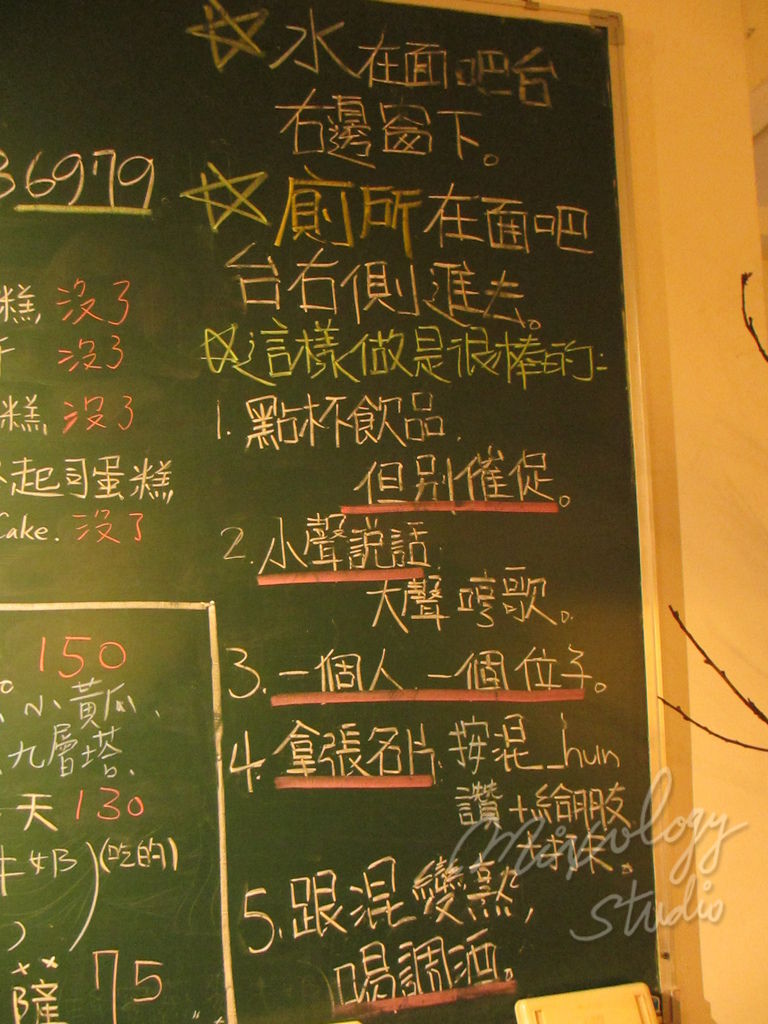 ☆水在面吧台
右邊窗下。
☆廁所在面吧
台右側進去。
☆這樣做是很棒的:
1. 點杯飲品.
但別催促。
2. 小聲說話.
大聲哼歌。
3. 一個人一個位子。
4. 拿張名片. 按混_hun
讚+給朋友
+打卡。
5. 跟混變熟,
喝調酒。
36979
糕 沒了
沒了
糕 沒了
起司蛋糕
Cake. 沒了
150
小黃瓜、
九層塔.
天 130
牛奶)(吃的)
75
Mixology
Studio